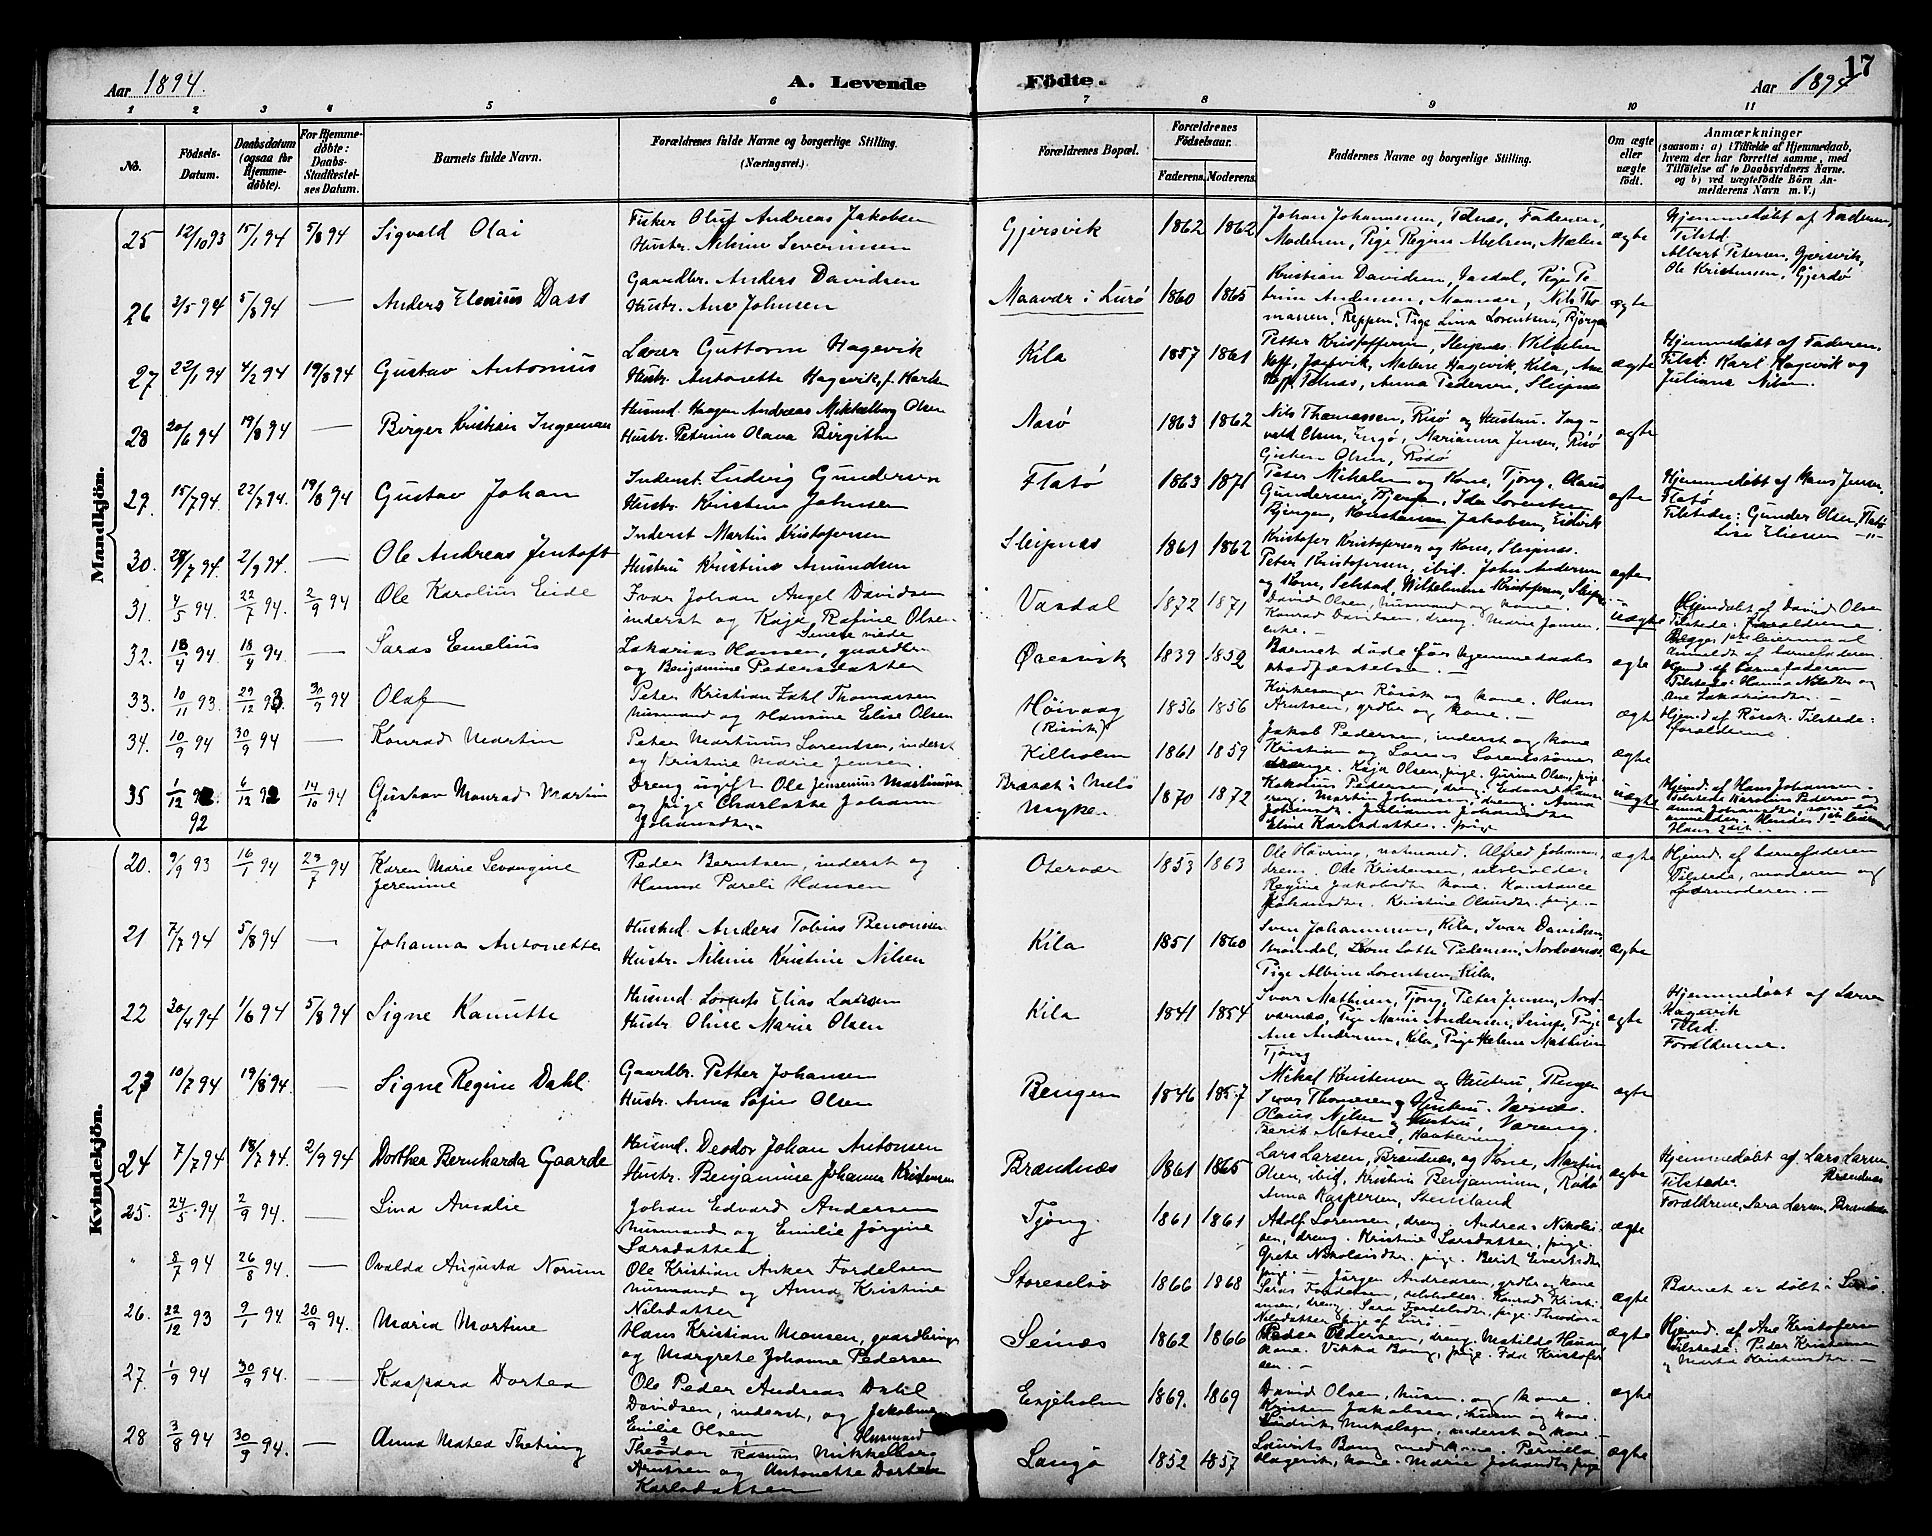 17
Aar 1894. A. Levende Födte. Aar 1894
1 2 3 4 5 6 7 8 9 10 11
No.
Födsels-Datum.
Daabsdatum (ogsaa for Hjemmedöbte).
For Hjemmedöbte: Daabs-Stadfæstelses Datum.
Barnets fulde Navn.
Forældrenes fulde Navne og borgerlige Stilling.
(Næringsvei.)
Forældrenes Bopæl.
Forældrenes Födselsaar.
Faderens. Moderens.
Faddernes Navne og borgerlige Stilling.
Om ægte eller uægte födt.
Anmærkninger
(saasom: a) i Tilfælde af Hjemmedaab,
hvem der har forrettet samme, med
Tilföielse af to Daabsvidners Navne.
og b) ved uægtefödte Börn An-
melderens Navn m. V.)
Mandkjön.
25 12/10 93 15/1 94 5/8 94 Sigvald Olai
Fisker Oluf Andreas Jakobsen
Hustr. Nilsine Severinsen
Gjersvik 1862 1862
Johan Johannesen, Telnæs, Faderen,
Moderen, Pige Regine Abelsen, Mælen
ægte
Hjemmedöbt af Faderen,
Tilsted.
Albert Petersen, Gjersvik,
Ole Kristensen, Gjerdö
26 2/5 94 5/8 94 — Anders Elenius Dass
Gaardbr. Anders Davidsen
Hustr. Ane Johnsen
Maavær i Lurö 1860 1865
Kristian Davidsen, Pige
ægte
27 22/1 94 4/2 94 19/8 94 Gustav Antonius
Lærer Guttorm Hagevik
Hustr. Antonette Hagevik, f.
Kila 1857 1861
Petter Kristoffersen, Sleipnæs
Malene Hagevik, Kila,
Telnæs, Anna Pedersen, Sleipnæs
ægte
Hjemmedöbt af Faderen,
Tilst. Karl Hagevik og
Juliane Nilsen.
28 20/6 94 19/8 94 — Birger Kristian Ingeman
Husmd. Haagen Andreas Mikkelborg Olsen
Hustr. Petrine Olava Birgitte
Nesö 1863 1862
Nils Thomassen, Risö og Hustru. Ing-
vald Olsen, Engö, Marianna Jensen, Risö
Olsen, Rödö
ægte
29. 15/7 94 22/7 94. 19/8 94 Gustav Johan
Inderst. Ludvig Gundersen
Hustr. Kristine Johnsen
Flatö 1863 1871
Peter Mikalsen og Kone, Tjong, Olaus
Gundersen, Ida Lorentsen
Konstanse Jakobsen, Eidvik
ægte
Hjemmedöbt af Hans Jensen,
Flatö
Tilstede: Gunder Olsen, Flatö
Lise Eliesen —"—
30. 28/7 94. 2/9 94. — Ole Andreas Jentoft
Inderst Martin Kristofersen
Hustru Kristine Amundsen
Sleipnæs 1861 1862
Kristofer Kristofersen og Kone, Sleipnæs.
Peter Kristofersen, ibid. John Andersen
og Kone, Selstad, Wilhelmine Kristofersen, Sleipnæs
ægte
31. 4/5 94. 22/7 94. 2/9 94 Ole Karolius Eide
Ivar Johan Angel Davidsen
inderst og Kaja Rafine Olsen.
Vasdal 1872 1871
David Olsen, husmand og kone.
Konrad Davidsen, dreng. Marie Jansen,
enke. —
uægte
Hjemdöbt af David Olsen
Tilstede: Forældrene.
Begges 1ste leiermaal
anmeldt af barnefaderen.
32. 18/4 94. 18/4 94. — Saras Emelius
Zakarias Hansen, gaardbr.
og Benjamine Pedersdatter
Öresvik 1839 1852
Barnet döde för hjemmedaabs
stadfæstelse. —
ægte
Hjemd. af barnefaderen
Tilstede: Hanna Nilsdtr og
Ane Zakariasdtr. —
33. 10/11 93. 29/12 93. 30/9 94 Olaf
Peter Kristian Zahl Thomassen
husmand og Hansine Elise Olsen
Höivaag
(Risvik) 1856 1856
Kirkesanger Rörvik og kone. Hans
Arntsen, grdbr og kone. —
ægte
Hjemd. af Rörvik. Tilstede:
forældrene.
34. 10/9 94 30/9 94 — Konrad Martin
Peter Martinus Lorentsen, inderst
og Kristine Marie Jensen.
Kilholm 1861 1859
Jakob Pedersen, inderst og kone
Kristian og Lorens Lorenssönner
drenge. Kaja Olsen, pige. Gurine Olsen, pige
ægte
35 1/12 92. 6/12 92 14/10 94 Gustav Monrad Martin
92
Dreng ugift Ole Jensenius Martinussen
og pige Charlotte Johanne
Johansdtr.
Brasæt i Melö
Myken 1870 1872
Karolius Pedersen, dreng. Edvard Hansen
dreng. Martin Johansen, dreng. Anna
Johansdtr. Julianna Johansdtr
Eline Karlsdatter. pige
uægte
Hjemd. af Hans Johansen
Tilstede Karolius Pedersen og
Anna Johansdtr,
anmelder. Hendes 1ste leierm.
Hans 2det.
Kvindekjön.
20. 9/9 93 16/1 94 23/7 94 Karen Marie Levangine
Jeremine
Peder Berntsen, inderst og
Hanna Pareli Hansen
Otervær 1853 1863
Ole Hövring, notmand. Alfred Johansen,
dreng. Ole Kristensen, selvholder.
Regine Jakobsdtr kone. Konstance
Johansdtr. Kristine Olausdtr. pige. —
ægte
Hjemd. af barnefaderen
Tilstede, moderen og
Gjordmoderen. —
21 7/7 94 5/8 94 — Johanna Antonette
Husmd. Anders Tobias Benonisen
Hustr. Nilsine Kristine Nilsen
Kila 1851 1860
Sven Johannesen, Kila, Ivar Davidsen,
Lotte Pedersen, Nordværnæs,
Pige Albine Lorentsen, Kila
ægte
22 30/4 94 1/6 94 5/8 94 Signe Kanutte
Husmd. Lorents Elias Larsen
Hustr. Oline Marie Olsen
Kila 1841 1854
Ivar Mathisen, Tjong, Peter Jensen, Nord-
værnæs, Pige Marie Andersen, Pige
Ane Andersen, Kila, Pige Helene Mathisen
Tjong
ægte
Hjemmedöbt af Lærer
Hagevik
Tilsd.
Forældrene.
23 10/7 94 19/8 94. — Signe Regine Dahl.
Gaardbr. Petter Johansen
Hustr. Anna Sofie Olsen
Rengen 1846 1857
Mikal Kristensen og Hustru, Rengen
Ivar Thomesen og Hustru. Værnæs.
Olaus Nilsen og Hustru, Værang.
Berit Matsen,
ægte
24 7/7 94 18/7 94. 2/9 94 Dorthea Bernharda Gaarde
Husmd. Deodor Johan Antonsen
Hustr. Benjamine Johanna Kristensen
Brændnæs 1861 1865
Lars Larsen, Brændnæs, og Kone, Martin
Olsen, ibid, Kristine Benjaminsen, Rödö
Anna Kaspersen, Stensland
ægte
Hjemmedöbt af Lars Larsen
Brændnæs
Tilstede:
Forældrene, Sara Larsen, Brændnæs
25. 24/5 94 2/9 94. — Lina Amalie
Johan Edvard Andersen
husmand og Emilie Jörgine
Larsdatter
Tjong. 1861 1861
Adolf Sörensen, dreng. Andreas Nikolai-
sen, dreng. Kristine Larsdatter, pige.
Grete Nikolaisdtr. pige. Berit Evertsdtr
pige —
ægte
" 8/7 94 26/8 94. — Ovalda Augusta Norum
Ole Kristian Anker Fordelsen
husmand og Anna Kristine
Nilsdatter
Storeselsö 1866 1868
Jörgen Andreasen, grdbr og kone
Saras Fordelsen, selvholder. Konrad Kristi-
ansen, dreng. Sara Fordelsdtr, pige. Theodora
Nilsdatter pige af Lurö
ægte
Barnet er döbt i Lurö.
26. 22/12 93 9/1 94. 20/9 94. Maria Martine
Hans Kristian Monsen, gaardbruger
og Margrete Johanne Pedersen
Seines 1862 1866
Peder Pedersen, dreng. Matilde Hansen
kone. Vikka Bang, pige. Ida Kristofer-
sen. —
ægte
Hjemd. af Ane Kristofersen
Tilstede: Peder Kristensen
og Marta Kristiansdtr. —
27. 1/9 94 30/9 94. — Kaspara Dortea
Ole Peder Andreas Dahl
Davidsen, inderst, og Jakobine
Emilie Olsen
Esjeholm 1869. 1869
David Olsen, husm. og kone.
Kristen Jakobsen, husm og kone.
Fredrik Mikalsen, inderst og kone. —
ægte
28 3/8 94 30/9 94. — Anna Matea Thetting
Husmand
Theodor Rasmus Mikkelborg
Arntsen og Antonette Dortea
Karlsdatter
Langö 1852 1857
Laurits Bang med kone. Pernilla
Hagevik, kone. Marie Johansdtr, pige
ægte